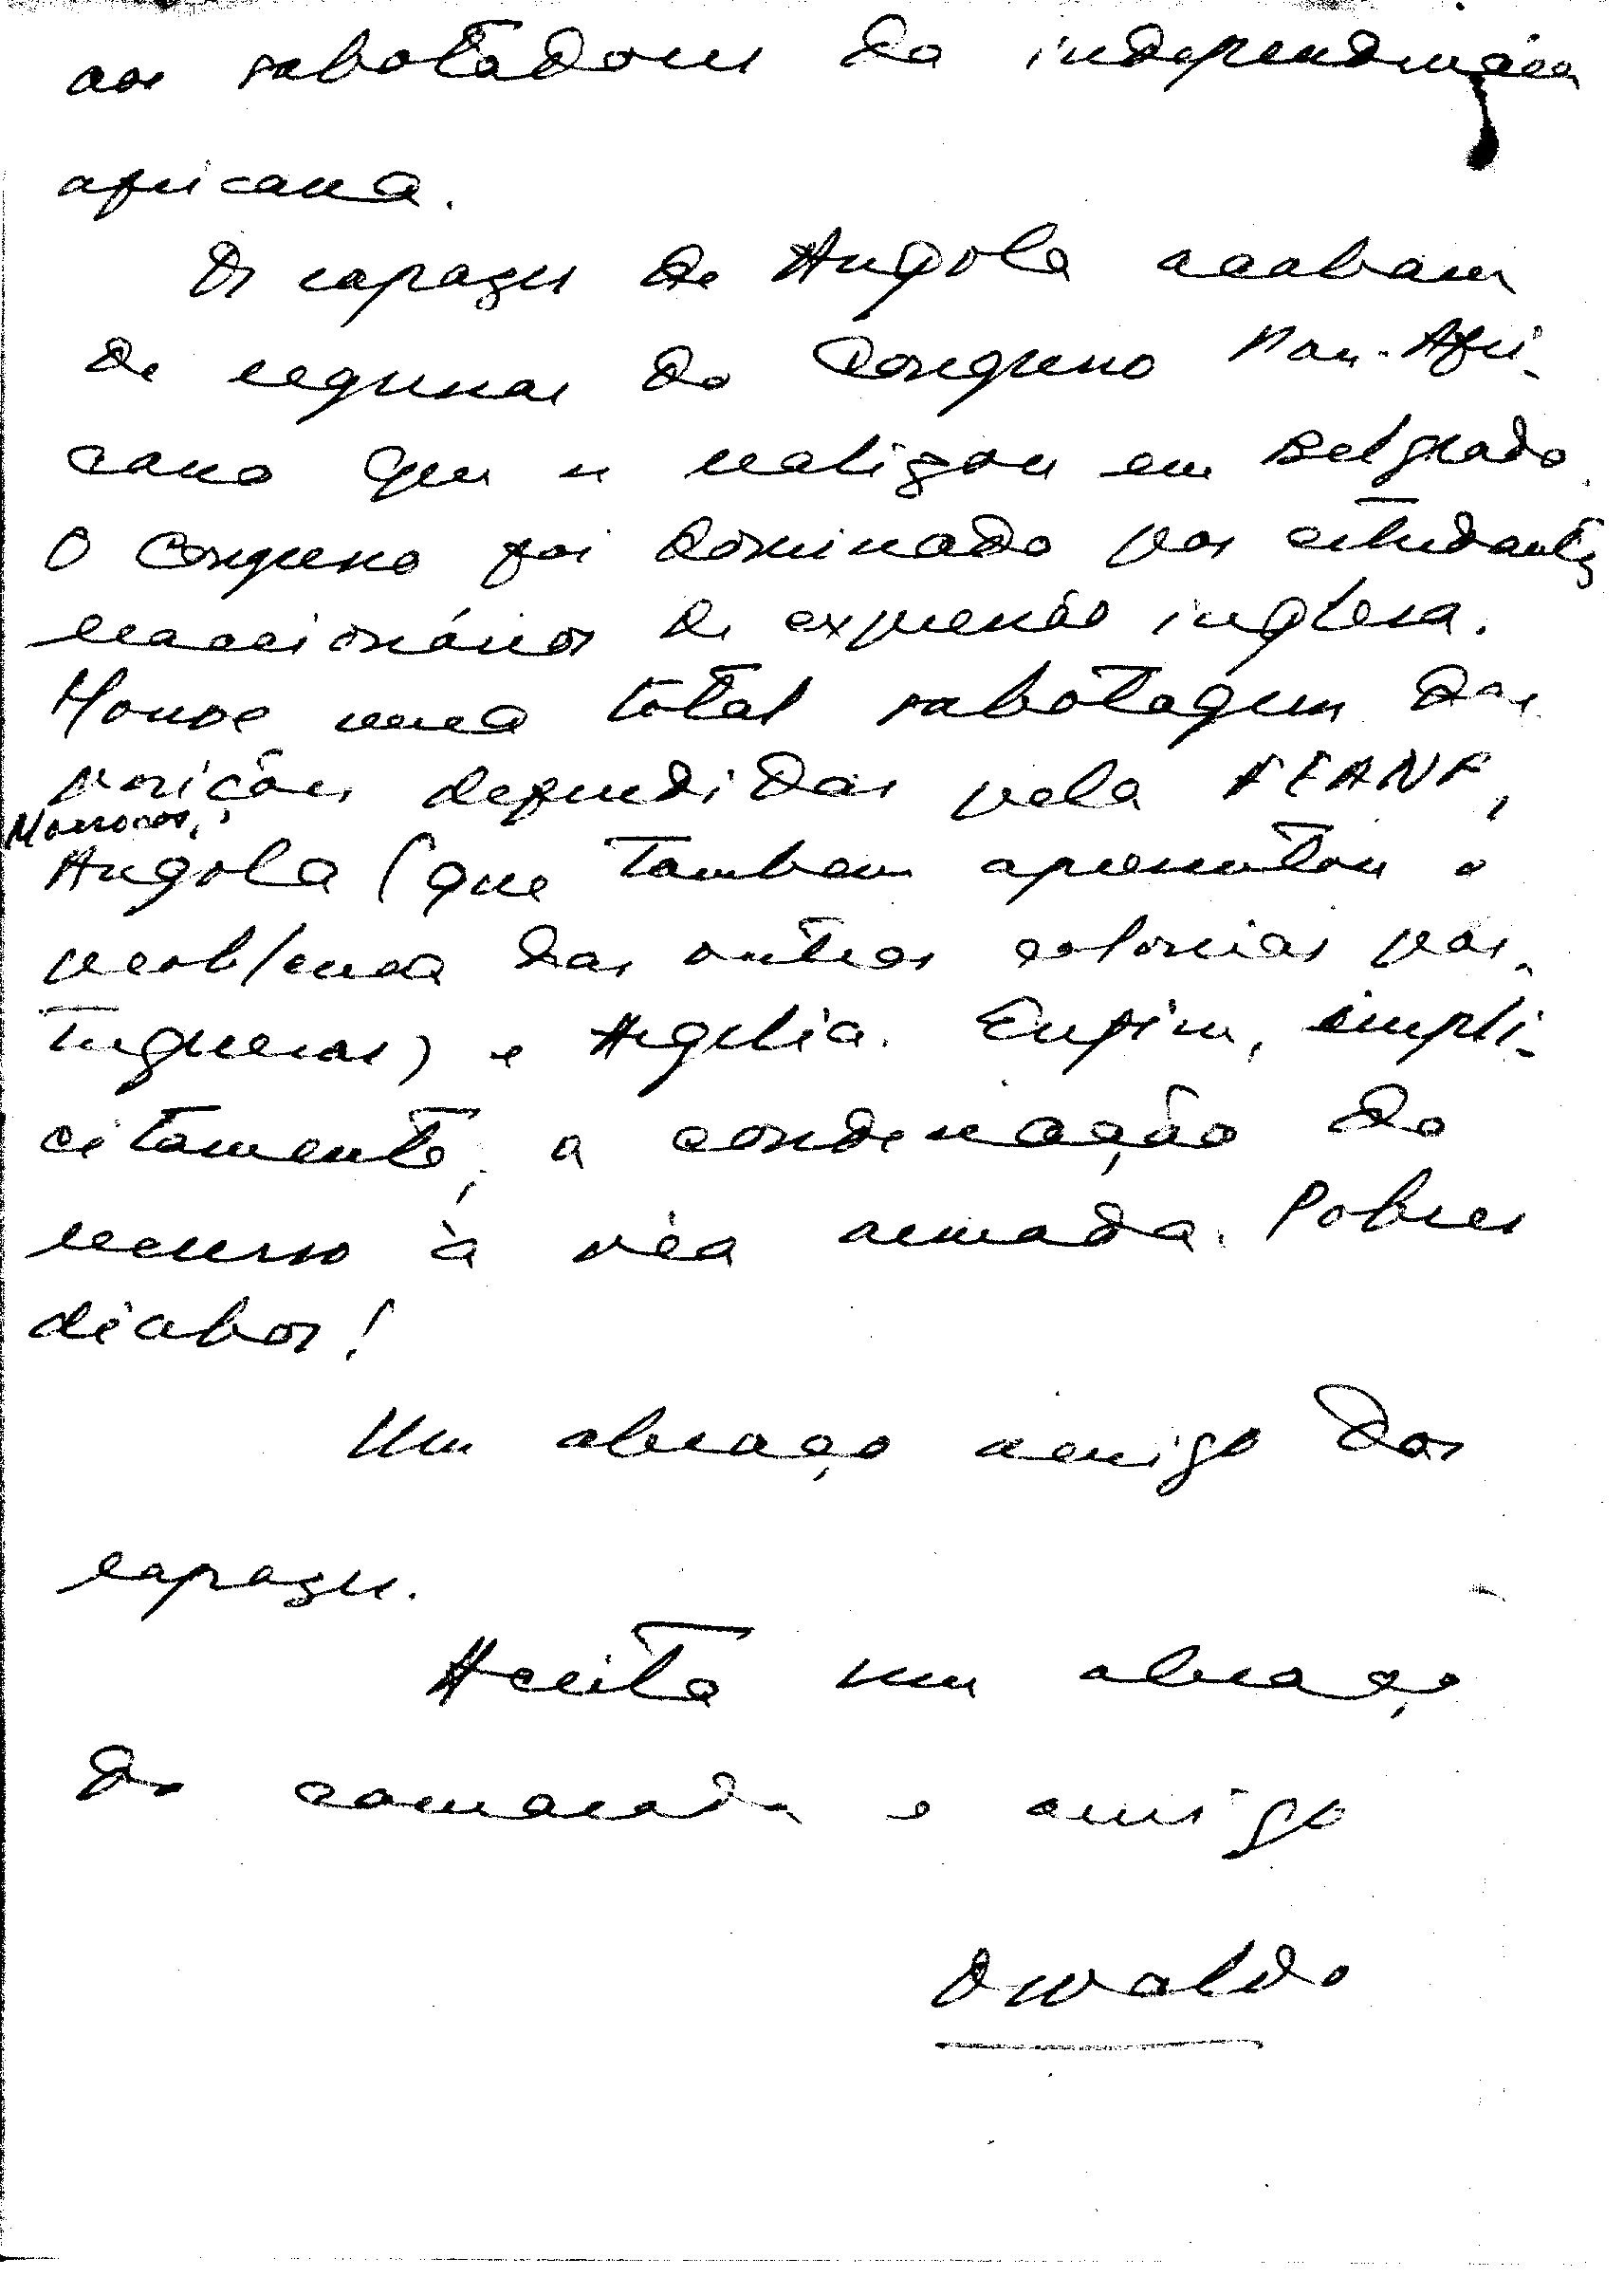 aos sabotadores da independência
africana.
Os rapazes de Angola acabam
de regressar do Congresso Pan-Afri-
cano que se realizou em Belgrado.
O Congresso foi dominado por estudantes
reaccionários de expressão inglesa.
Houve uma total sabotagem das
posições defendidas pela FEANF,
Marrocos,
Angola (que tambem apresentou o
problema das outras colonias por-
tuguesas) e Argelia. Enfim, impli-
citamente, a condenação do
recurso à via armada. Pobres
diabos!
Um abraço amigo dos
rapazes.
Aceita um abraço
do camarada e amigo
Oswaldo